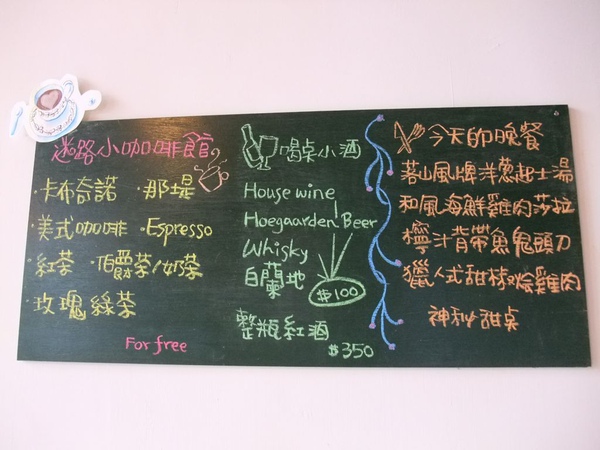 迷路小咖啡館
·卡布奇諾 ·那堤
·美式咖啡 ·Espresso
·紅茶 ·伯爵茶/奶茶
·玫瑰綠茶
For free
喝桌小酒
House wine
Hoegaarden Beer
Whisky
白蘭地
$100
整瓶紅酒
$350
今天的晚餐
若山風牌洋蔥起士湯
和風海鮮雞肉莎拉
檸汁背帶魚鬼頭刀
獵人式甜椒燴雞肉
神秘甜桌